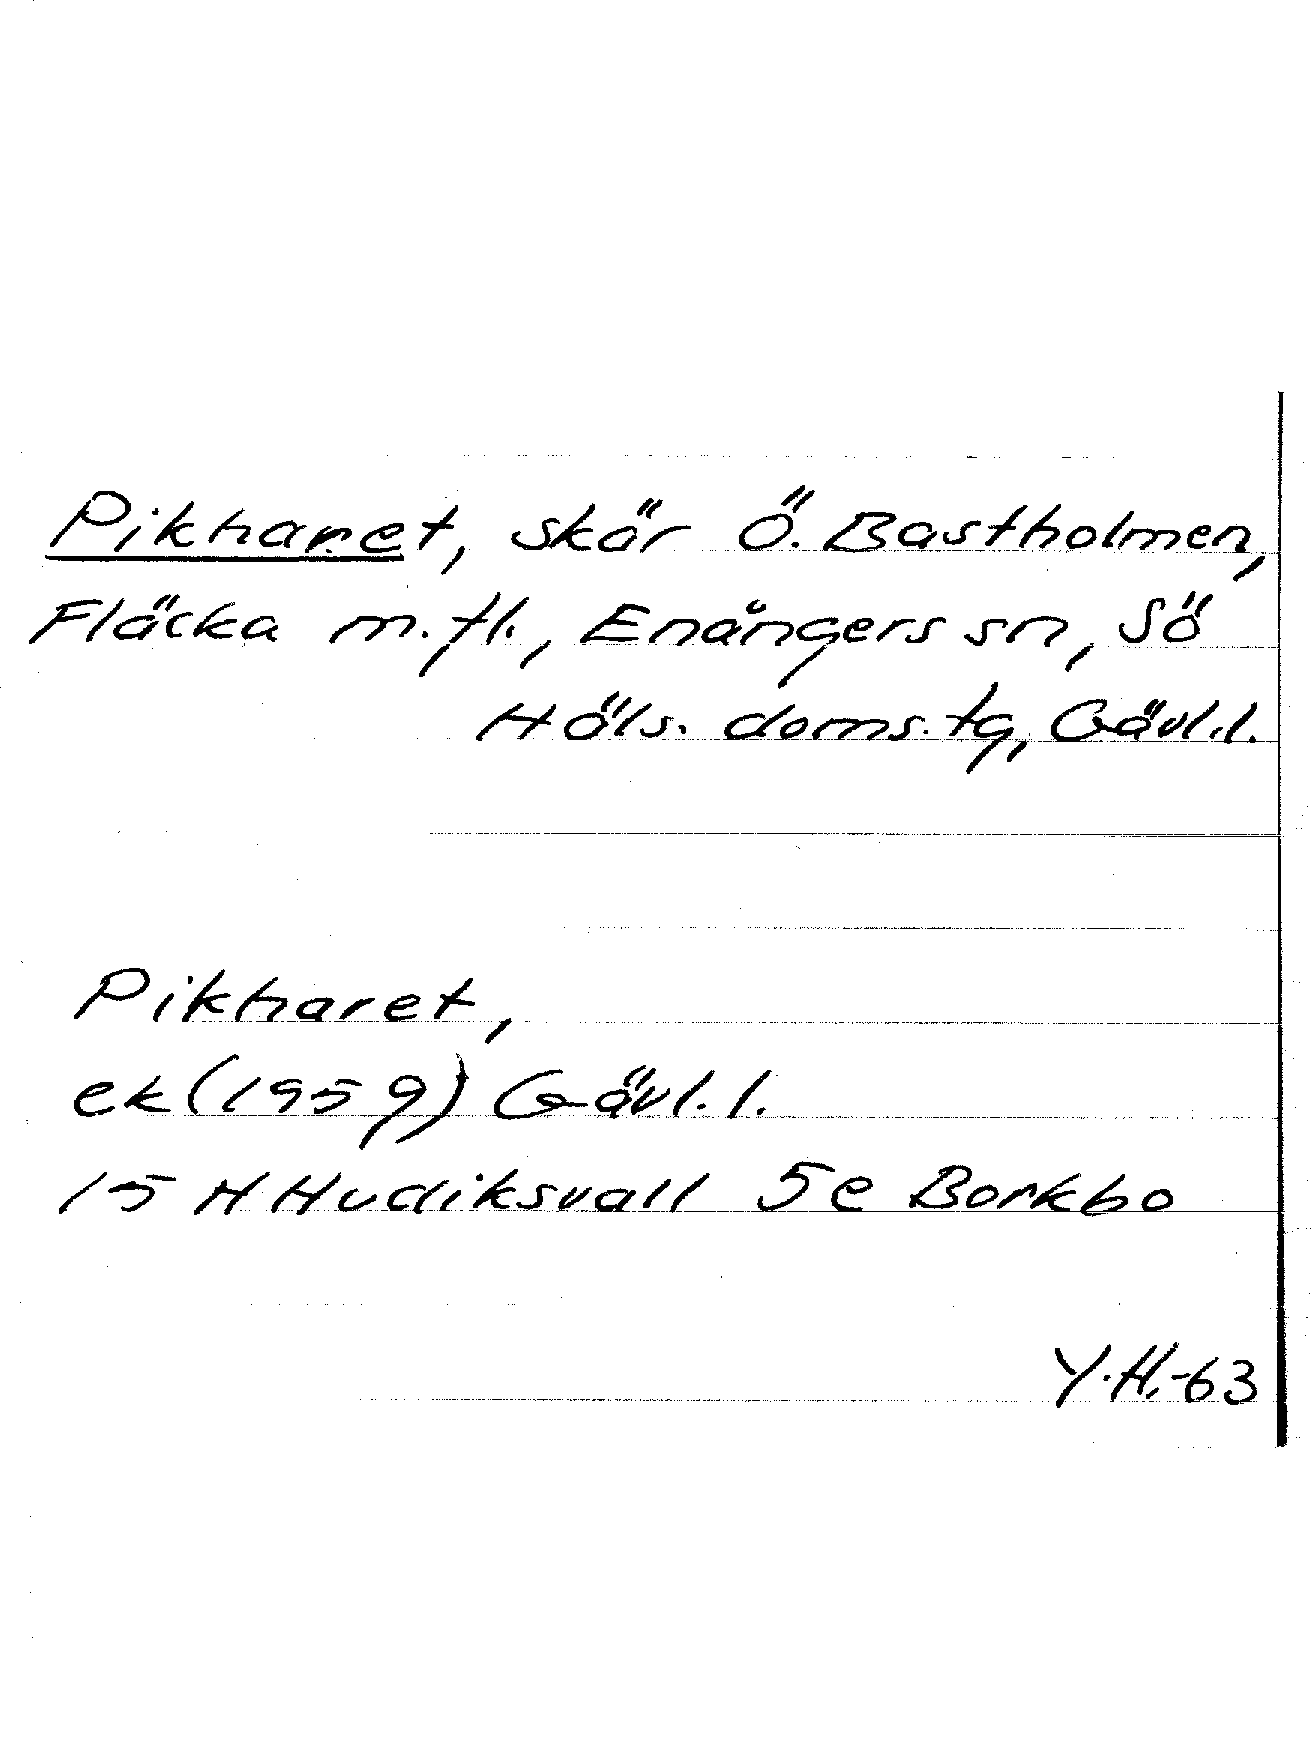 Pikharet, skär Ö. Bastholmen,
Fläcka m.fl., Enångers sn, Sö
Häls. doms.tg, Gävl.l.
Pikharet,
ek (1959) Gävl.l.
15 H Hudiksvall 5e Borkbo
Y.H.-63